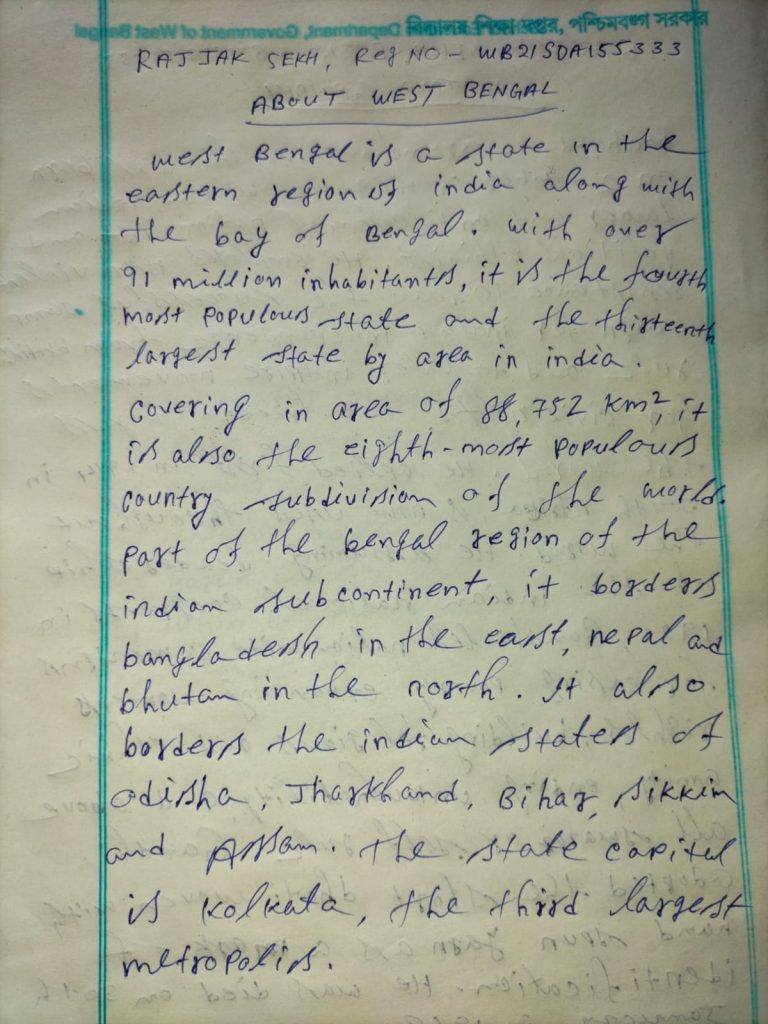 বিদ্যালয় শিক্ষা দপ্তর, পশ্চিমবঙ্গ সরকার
Department, Government of West Bengal
RAJJAK SEKH, Reg NO - WB21SDA155333
ABOUT WEST BENGAL
West Bengal is a state in the
eastern region of india along with
the bay of Bengal. With over
91 million inhabitants, it is the fourth
most populous state and the thirteenth
largest state by area in india.
Covering in area of 88,752 km², it
is also the eighth-most populous
country subdivision of the world.
part of the bengal region of the
indian subcontinent, it borders
bangladesh in the east, nepal and
bhutan in the north. It also
borders the indian states of
odisha, Jharkhand, Bihar, sikkim
and Assam. the state capital
is kolkata, the third largest
metropolis.